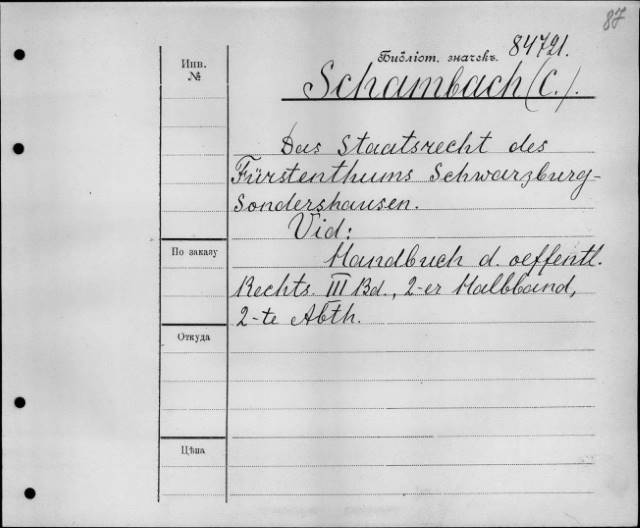 87
Библіот. значекъ. 84721.
Schambach (C.).
Инв.
№
Das Staatsrecht des
Fürstenthums Schwarzburg-
Sondershausen.
Vid:
По заказу
Handbuch d. oeffentl.
Rechts. III Bd., 2-er Halbband,
2-te Abth.
Откуда
Цѣна